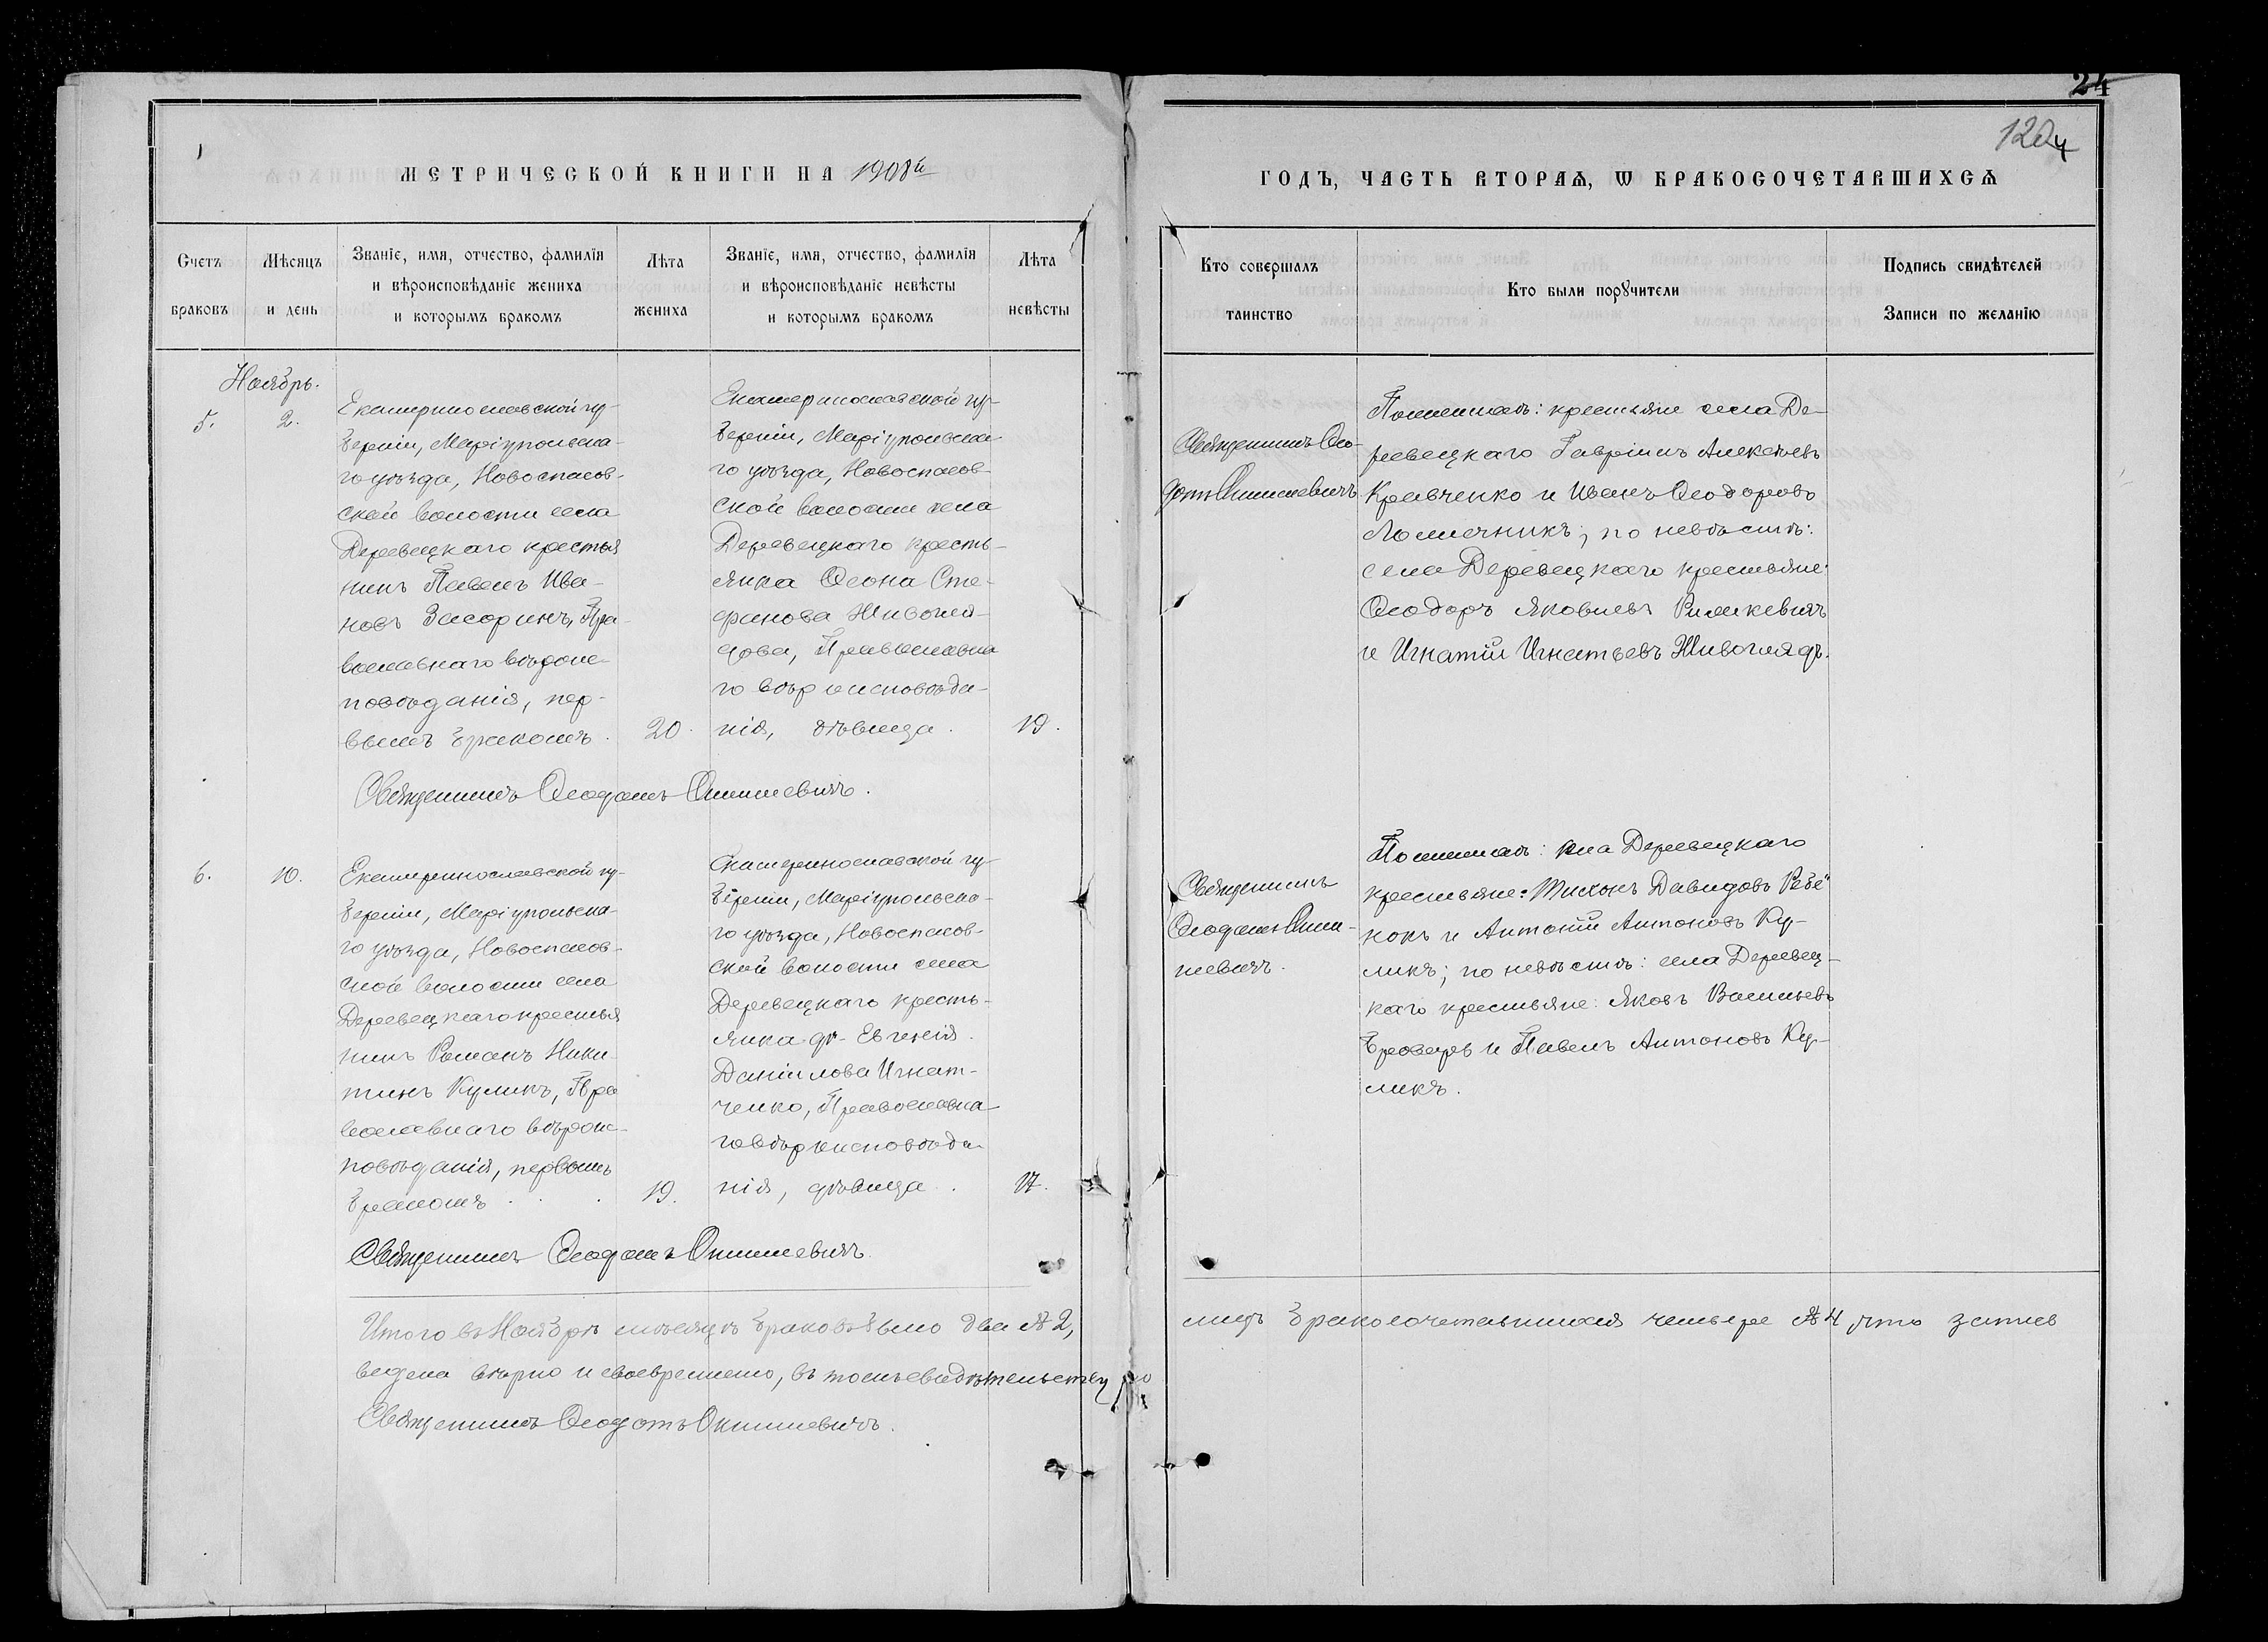 24
120
4
МЕТРИЧЕСКОЙ КНИГИ НА 1908й
ГОДЪ, ЧАСТЬ ВТОРАѦ, Ѡ БРАКОСОЧЕТАВШИХСѦ
Счетъ браковъ
Мѣсяцъ и день
Званіе, имя, отчество, фамилія
и вѣроисповѣданіе жениха
и которымъ бракомъ
Лѣта жениха
Званіе, имя, отчество, фамилія
и вѣроисповѣданіе невѣсты
и которымъ бракомъ
Лѣта невѣсты
Кто совершалъ
таинство
Кто были порꙋчители
Подпись свидѣтелей
Записи по желанію
Ноябрь.
5.
2.
Екатеринославской гу-
берніи, Маріупольска-
го уѣзда, Новоспасов-
ской волости села
Деревецкаго крестья
нинъ Павелъ Ива-
новъ Засоринъ, Пра-
вославнаго вѣроис-
повѣданія, пер-
вымъ бракомъ.
20.
Екатеринославской гу-
берніи, Маріупольска
го уѣзда, Новоспасов-
ской волости села
Деревецкаго кресть-
янка Ѳеона Сте-
фанова Живогля-
дова, Православна
го вѣроисповѣда-
нія, дѣвица.
19.
Священникъ Ѳео-
дотъ Онишкевичъ
По женихѣ: крестьяне села Де-
ревецкаго Гавріилъ Алексѣевъ
Кравченко и Иванъ Ѳеодоровъ
; по невѣстѣ:
села Деревецкаго крестьяне:
Ѳеодоръ Яковлевъ
и Игнатій Игнатьевъ Живоглядъ.
Священникъ Ѳеодотъ Онишкевичъ.
6.
10.
Екатеринославской гу-
берніи, Маріупольска-
го уѣзда, Новоспасов-
ской волости села
Деревецкаго крестья
нинъ Романъ Ники
тинъ Куликъ, Пра
вославнаго вѣроис-
повѣданія, первымъ
бракомъ
19.
Екатеринославской гу-
берніи, Маріупольска-
го уѣзда, Новоспасов-
ской волости села
Деревецкаго кресть-
янка дѣ- Евгенія
Даніилова Игнат-
ченко, Православна
го вѣроисповѣда-
нія, дѣвица.
17.
Священникъ
Ѳеодотъ Ониш-
кевичъ.
По женихѣ: села Деревецкаго
крестьяне: Тихонъ Давидовъ Ребё
нокъ и Антоній Антоновъ Ку-
ликъ; по невѣстѣ: села Деревец-
каго крестьяне: Яковъ Васильевъ
и Павелъ Антоновъ Ку-
ликъ.
Священникъ Ѳеодотъ Онишкевичъ.
Итого въ Ноябрѣ мѣсяцѣ браковъ было два № 2, лицъ бракосочетавшихся четыре № 4, что запись
ведена вѣрно и своевременно, въ томъ свидѣтельствую
Священникъ Ѳеодотъ Онишкевичъ.